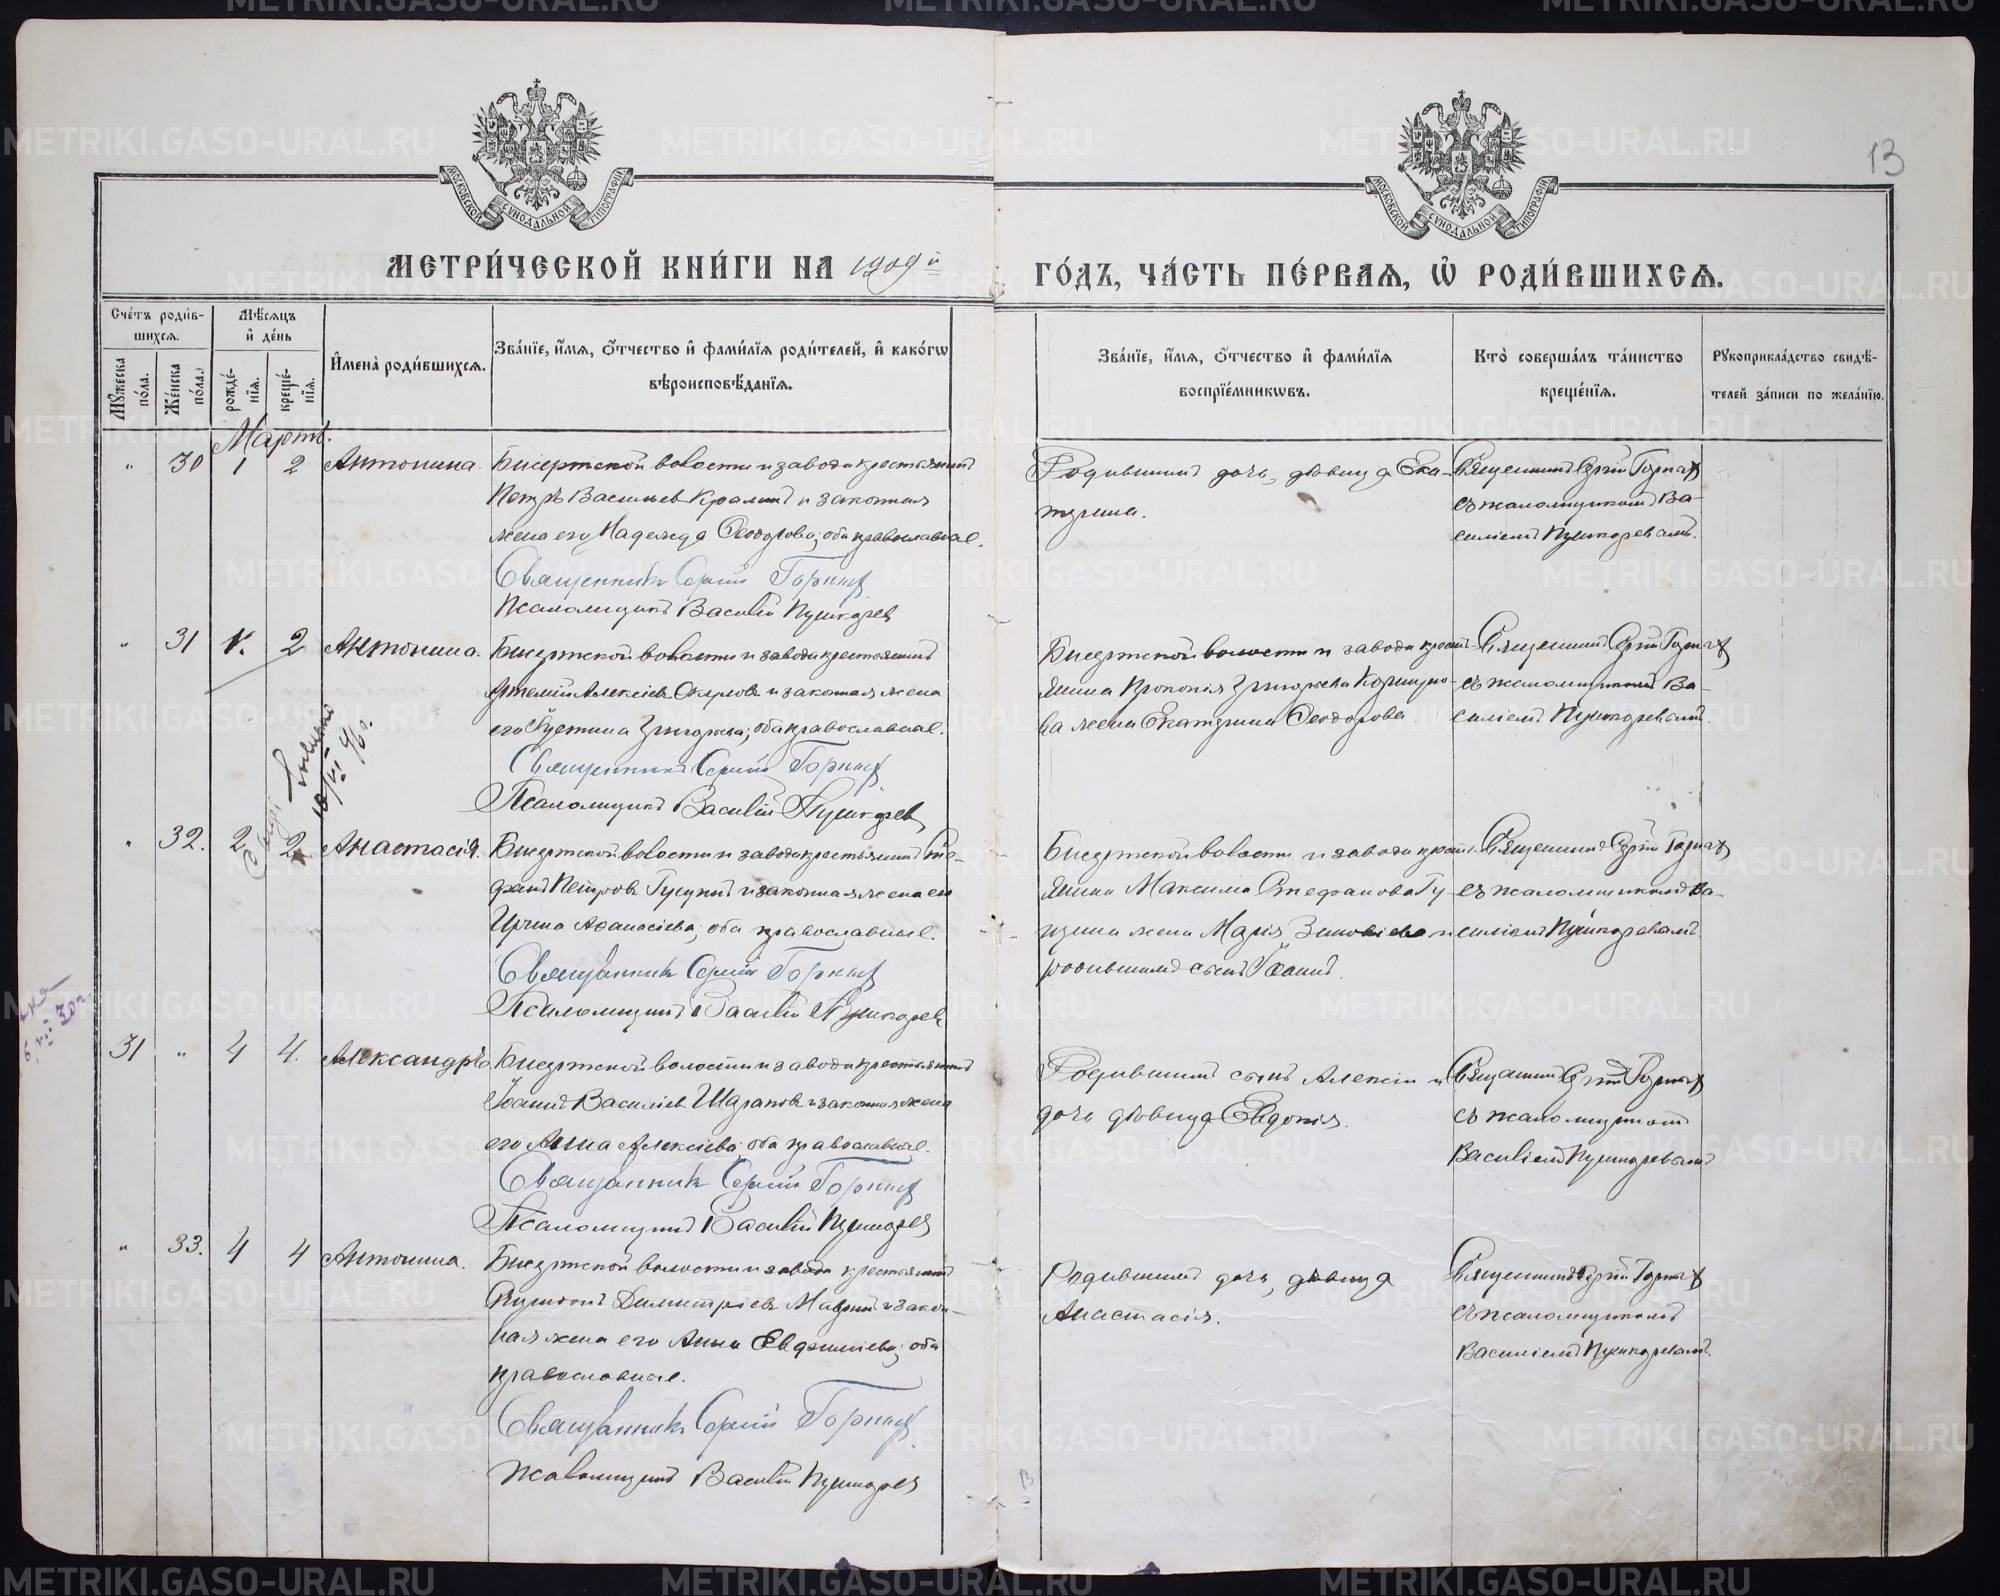 13
МОСКОВСКОЙ СУНОДАЛЬНОЙ ТИПОГРАФІИ
МОСКОВСКОЙ СУНОДАЛЬНОЙ ТИПОГРАФІИ
МЕТРИ́ЧЕСКОЙ КНИ́ГИ НА 1909й ГО́ДЪ, ЧА́СТЬ ПЕ́РВАЯ, Ѡ РОДИ́ВШИХСЯ.
Сче́тъ роди́вшихся.
Му́жеска по́ла.
Же́нска по́ла.
Мѣ́сяцъ и де́нь
рожде́нія.
креще́нія.
Имена̀ роди́вшихся.
Зва́ніе, и́мя, о́тчество и фами́лія роди́телей, и како́гѡ вѣроисповѣ́данія.
Зва́ніе, и́мя, о́тчество и фами́лія воспріе́мникѡвъ.
Кто̀ соверша́лъ та́инство креще́нія.
Рукоприкла́дство свидѣ́телей за́писи по жела́нію.
Мартъ.
" 30 1 2 Антонина.
Бисертской волости и завода крестьянинъ
Петръ Васильевъ и законная
жена его Надежда Ѳеодорова; оба православные.
Священникъ Сергій Горныхъ
Псаломщикъ Василій Пушкаревъ
Родившихъ дочь, дѣвица Ека-
терина.
Священникъ Сергій Горныхъ
съ псаломщикомъ Ва-
силіемъ Пушкаревымъ.
" 31 1. 2 Антонина.
Бисертской волости и завода крестьянинъ
Артемій Алексіевъ и законная жена
его Іустина Григорьева; оба православные.
Священникъ Сергій Горныхъ
Псаломщикъ Василій Пушкаревъ
Бисертской волости и завода кресть-
янина Прокопія Григорьева
ва жена Екатерина Ѳеодорова.
Священникъ Сергій Горныхъ
съ псаломщикомъ Ва-
силіемъ Пушкаревымъ.
" 32. 2 2 Анастасія.
Бисертской волости и завода крестьянинъ Сте-
фанъ Петровъ и законная жена его
Ирина Аѳанасіева; оба православные.
Священникъ Сергій Горныхъ
Псаломщикъ Василій Пушкаревъ
Бисертской волости и завода кресть-
янина Максима Стефанова Гу-
жена Марія Зиновіева и
родившихъ сынъ Іоаннъ.
Священникъ Сергій Горныхъ
съ псаломщикомъ Ва-
силіемъ Пушкаревымъ.
31 " 4 4. Александръ.
Бисертской волости и завода крестьянинъ
Іоаннъ Василіевъ Шараповъ и законная жена
его Анна Алексіева; оба православные.
Священникъ Сергій Горныхъ
Псаломщикъ Василій Пушкаревъ
Родившихъ сынъ Алексій и
дочь дѣвица Евдокія.
Священникъ Сергій Горныхъ
съ псаломщикомъ
Василіемъ Пушкаревымъ
" 33. 4 4 Антонина.
Бисертской волости и завода крестьянинъ
Димитріевъ и закон-
ная жена его Анна Евфиміева; оба
православные.
Священникъ Сергій Горныхъ
Псаломщикъ Василій Пушкаревъ
Родившихъ дочь, дѣвица
Анастасія.
Священникъ Сергій Горныхъ
съ псаломщикомъ
Василіемъ Пушкаревымъ.
METRIKI.GASO-URAL.RU